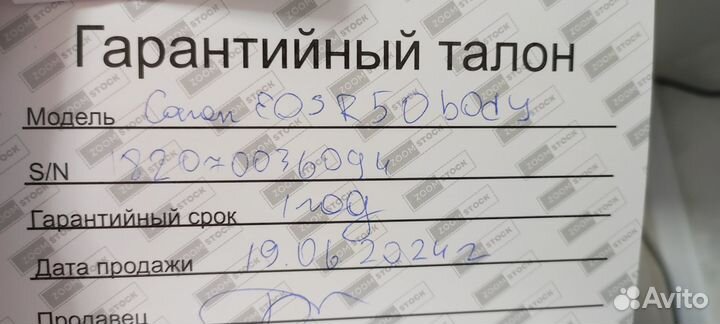 Гарантийный талон
Модель Canon EOS R50 body
S/N 82070036094
Гарантийный срок 1 год
Дата продажи 19.06.2024г
Продавец
Avito